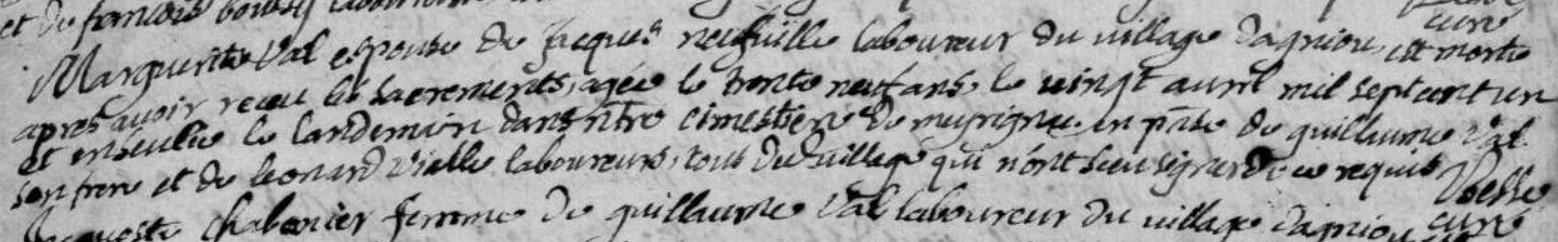 et de francois boussy
curé
Marguerite Val espouse de Jacques neufville laboureur du village dagniou, est morte
apres avoir receu les sacrements, agée de trente neuf ans, le vingt avril mil sept cent un
et ensevelie le landemain dans ntre cimestiere de meyrignac en pnce de guillaume Val
son frere et de leonard Vialle laboureurs, tous du village qui n'ont sceu signer de ce requis
curé
chabanier femme de guillaume Val laboureur du village dagniou